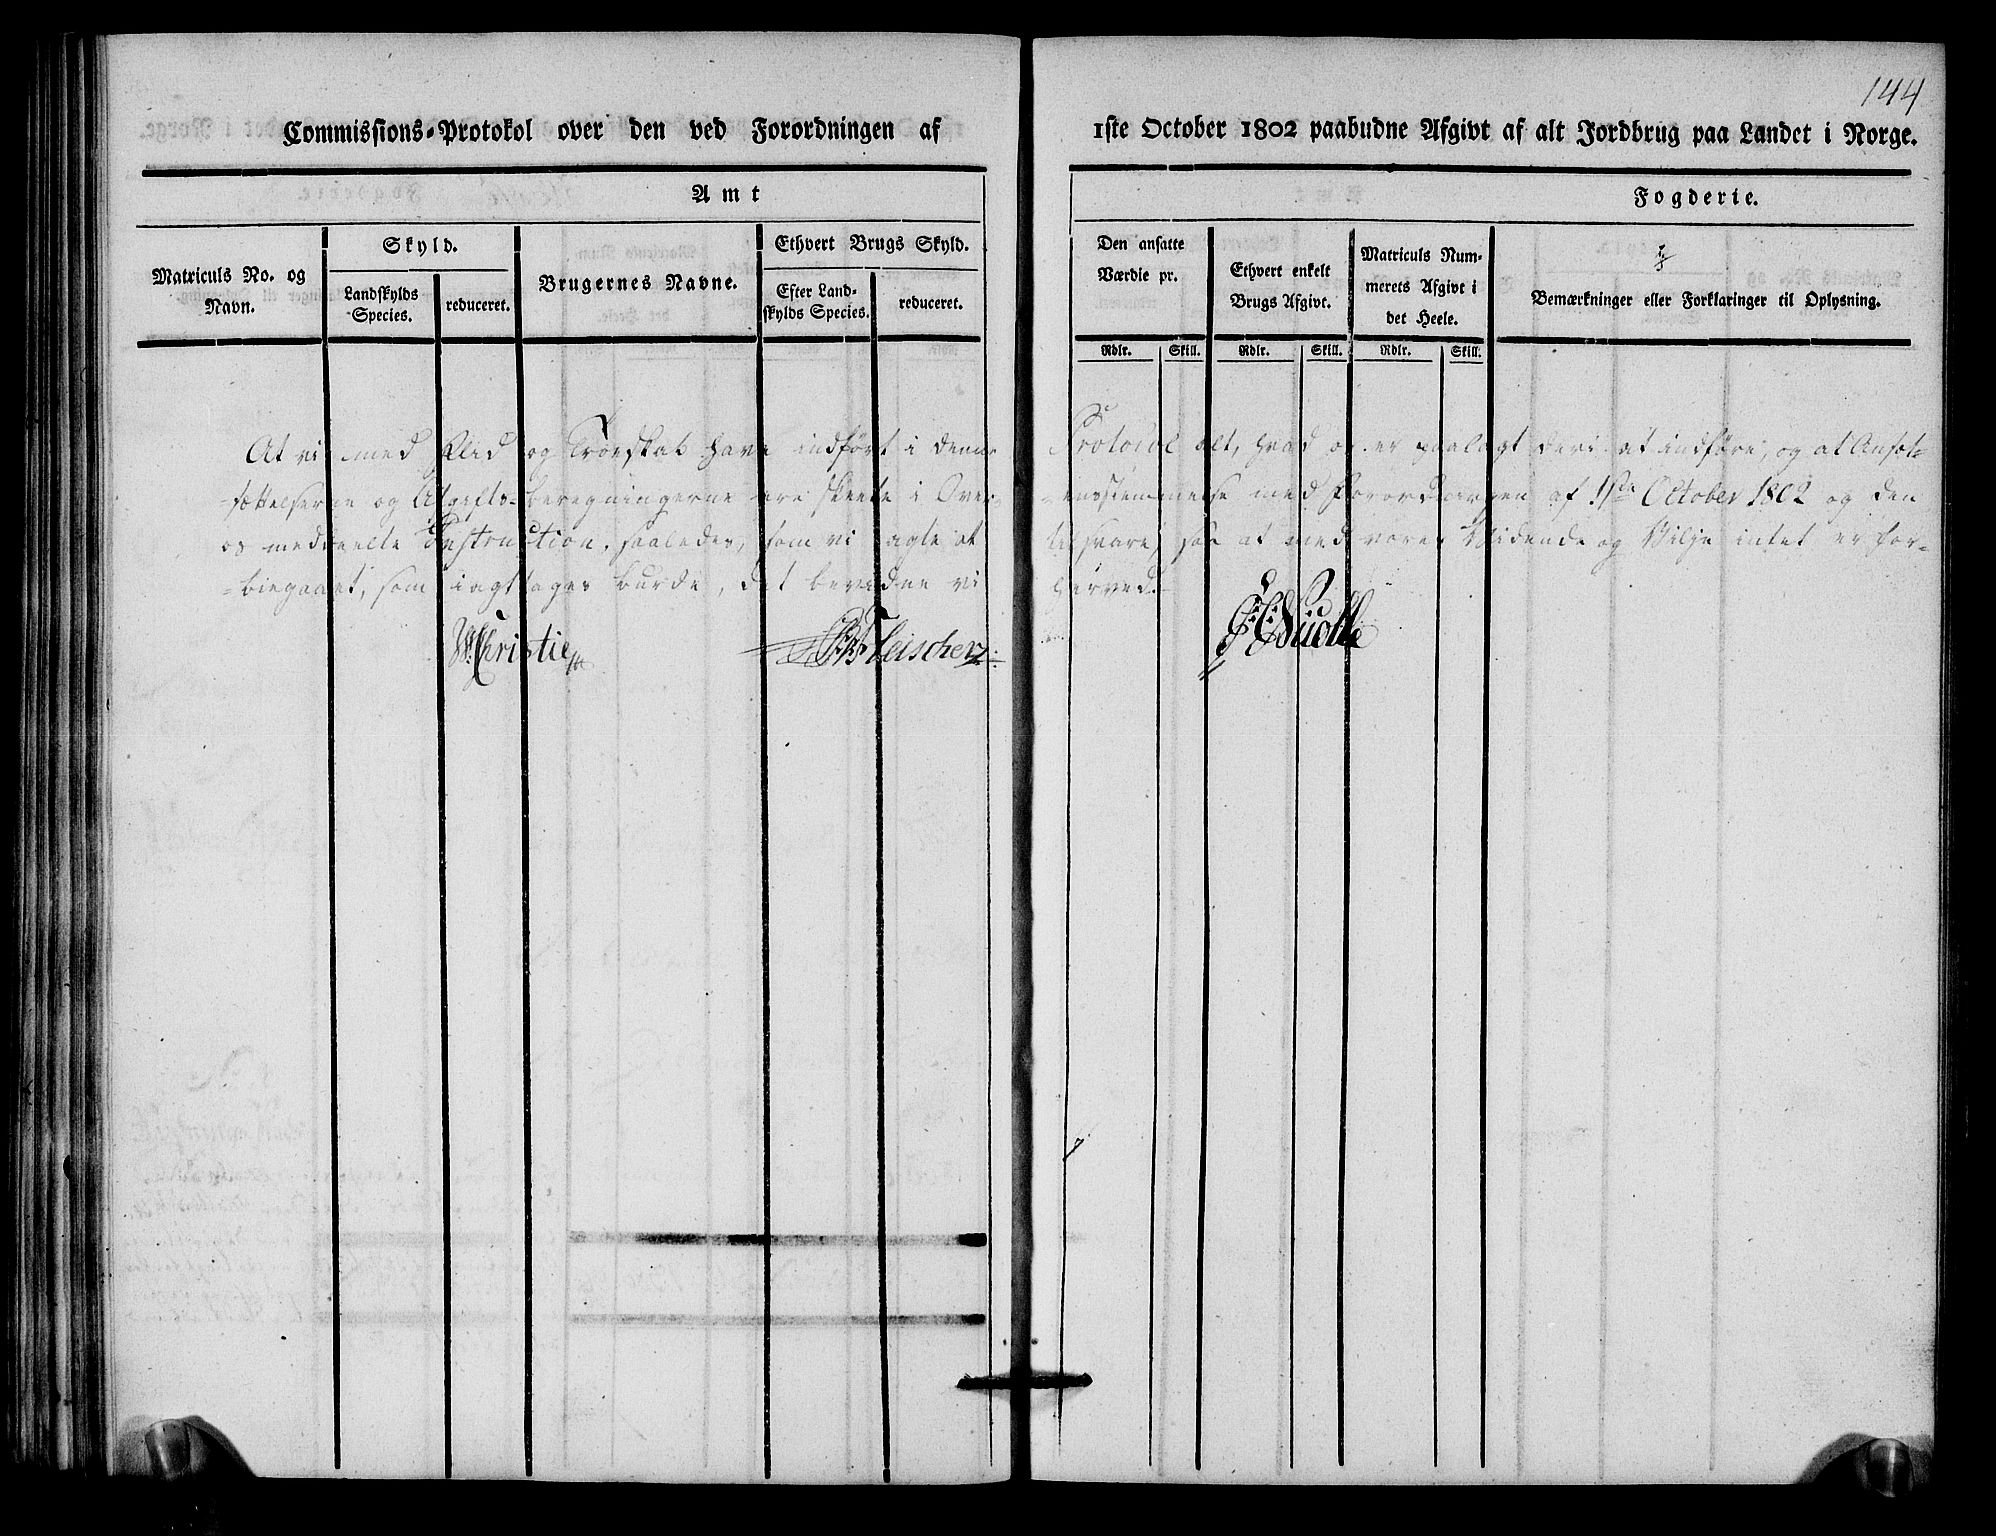 144
Commissions-Protokol over den ved Forordningen af 1ste October 1802 paabudne Afgivt af alt Jordbrug paa Landet i Norge.
Amt
Fogderie.
Matriculs No. og
Navn.
Skyld.
Landskylds
Species.
reduceret.
Brugernes Navne.
Ethvert Brugs Skyld.
Efter Land-
skylds Species.
reduceret.
Den ansatte
Værdie pr.
Rdlr. Skill.
Ethvert enkelt
Brugs Afgivt.
Rdlr. Skill.
Matriculs Num-
merets Afgivt i
det Heele.
Rdlr. Skill.
Bemærkninger eller Forklaringer til Oplysning.
At vi med Flid og Troeskab have indført i denne Protocol alt, hvad os er paalagt deri at indføre, og at Ansæt-
-sættelserne og Afgifts-beregningerne ere skeete i Over-eensstemmelse med Forordningen af 1ste October 1802 og den
os meddeelte Instruction, saaledes, som vi agte at tilsvare, saa at med vores Vidende og Vilje intet er for-
-biegaaet, som iagttages burde, det bevidne vi herved.
W Christie
Fleischer